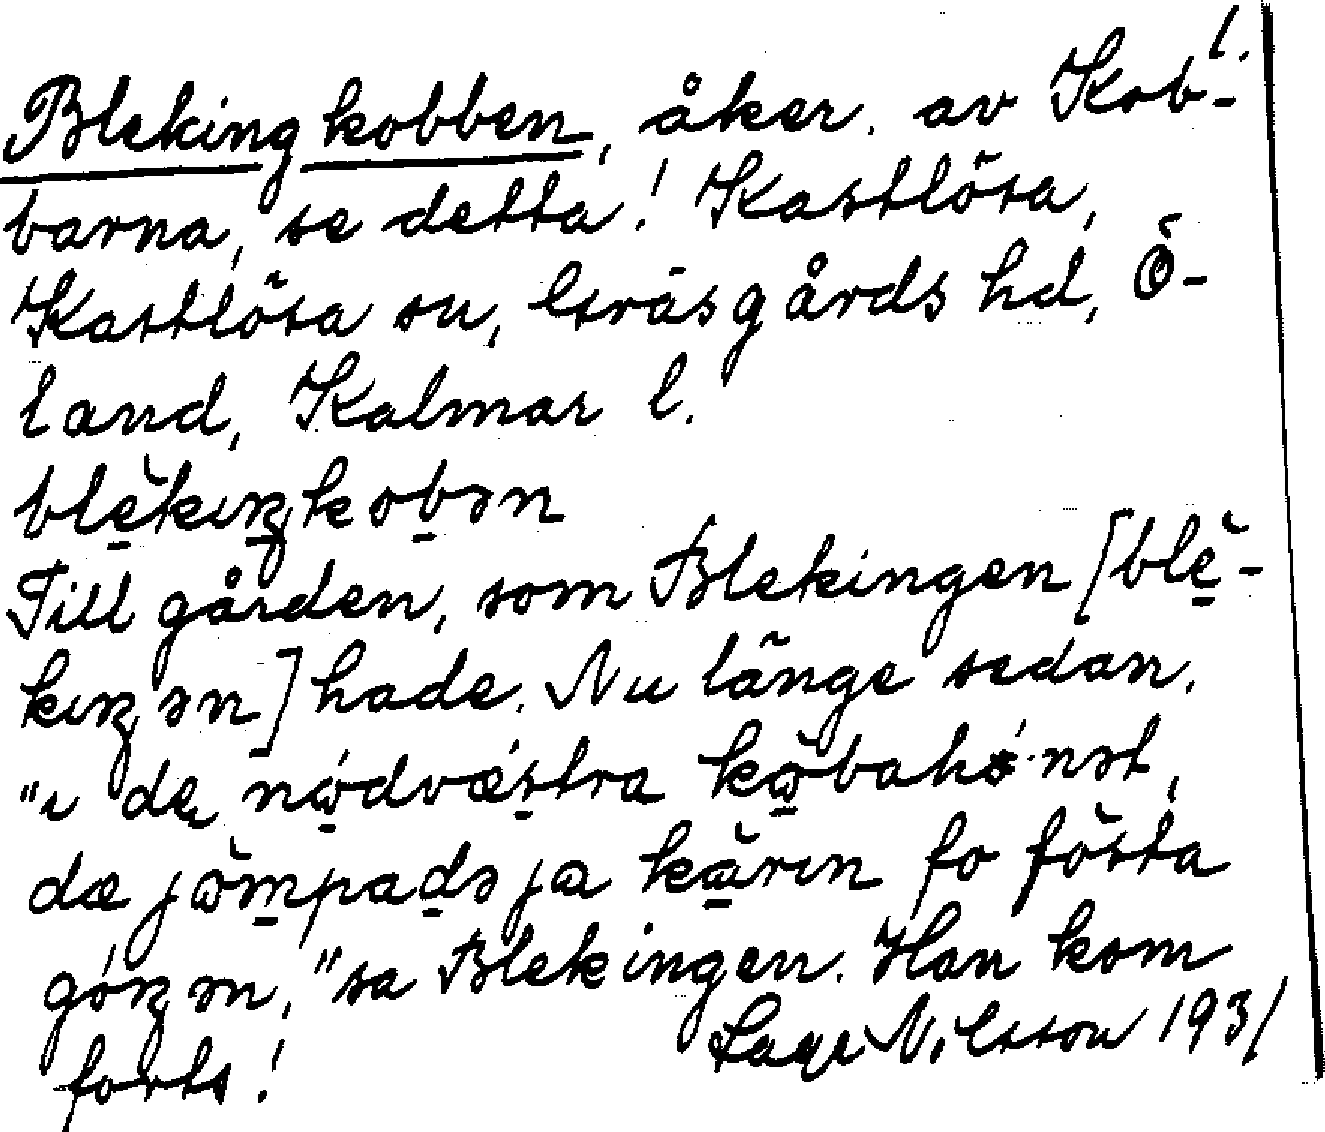 1.
Blekingkobben, åker. av Kob-
barna, se detta! Kastlösa,
Kastlösa sn, Gräsgårds hd, Ö-
land, Kalmar l.
blèkıŋkobən
Till gården, som Blekingen [blè-
kıŋən] hade. Nu länge sedan.
"ı dæ nɷ́dvǽstra kɷ̀bahó·nət,
dæ jɷ̀mpadə ja kàrın fo fösta
góŋən," sa Blekingen. Han kom
forts!
Lage Nilsson 1931